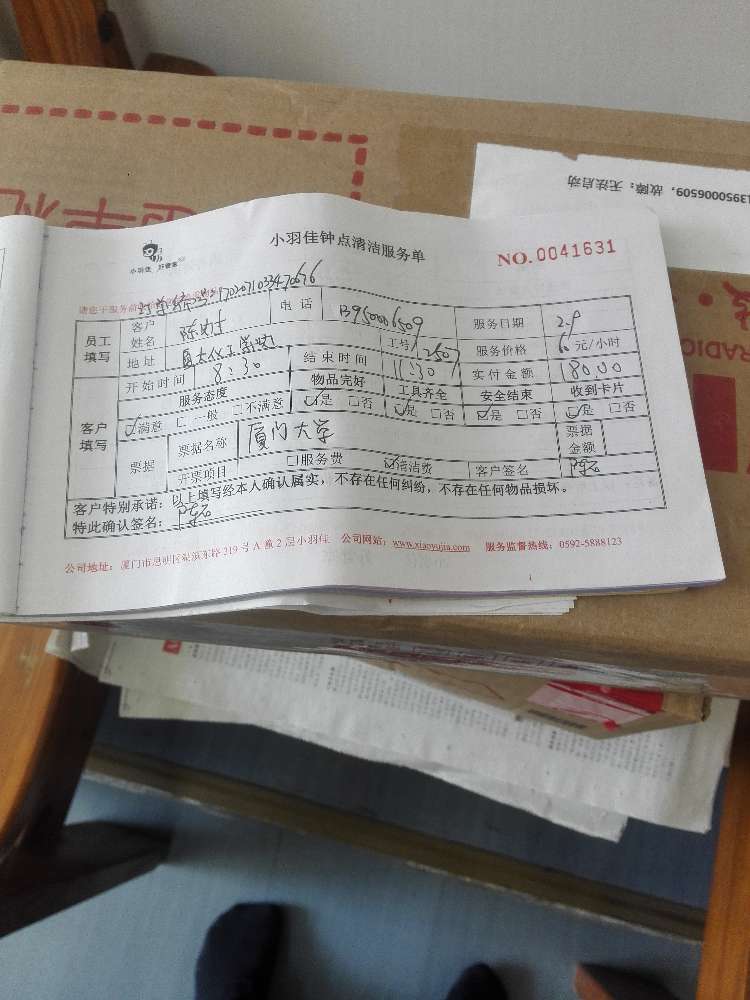 13950006509, 故障: 无法启动
小羽佳钟点清洁服务单
小羽佳 好管家
NO. 0041631
订单编号:1702071033470676
员工填写 客户姓名 陈 电话 13950006509 服务日期 2.9
地址 厦大化工学院 工号 2507 服务价格 60 元/小时
开始时间 8:30 结束时间 11:30 实付金额 180.00
客户填写 服务态度 物品完好 工具齐全 安全结束 收到卡片
☑满意 □一般 □不满意 ☑是 □否 ☑是 □否 ☑是 □否 ☑是 □否
票据 票据名称 厦门大学 票据金额
开票项目 □服务费 ☑清洁费 客户签名 陈
客户特别承诺:以上填写经本人确认属实,不存在任何纠纷,不存在任何物品损坏。
特此确认签名: 陈
公司地址:厦门市思明区梨滨东路319号A幢2层小羽佳 公司网站:www.xiaoyujia.com 服务监督热线:0592-5888123